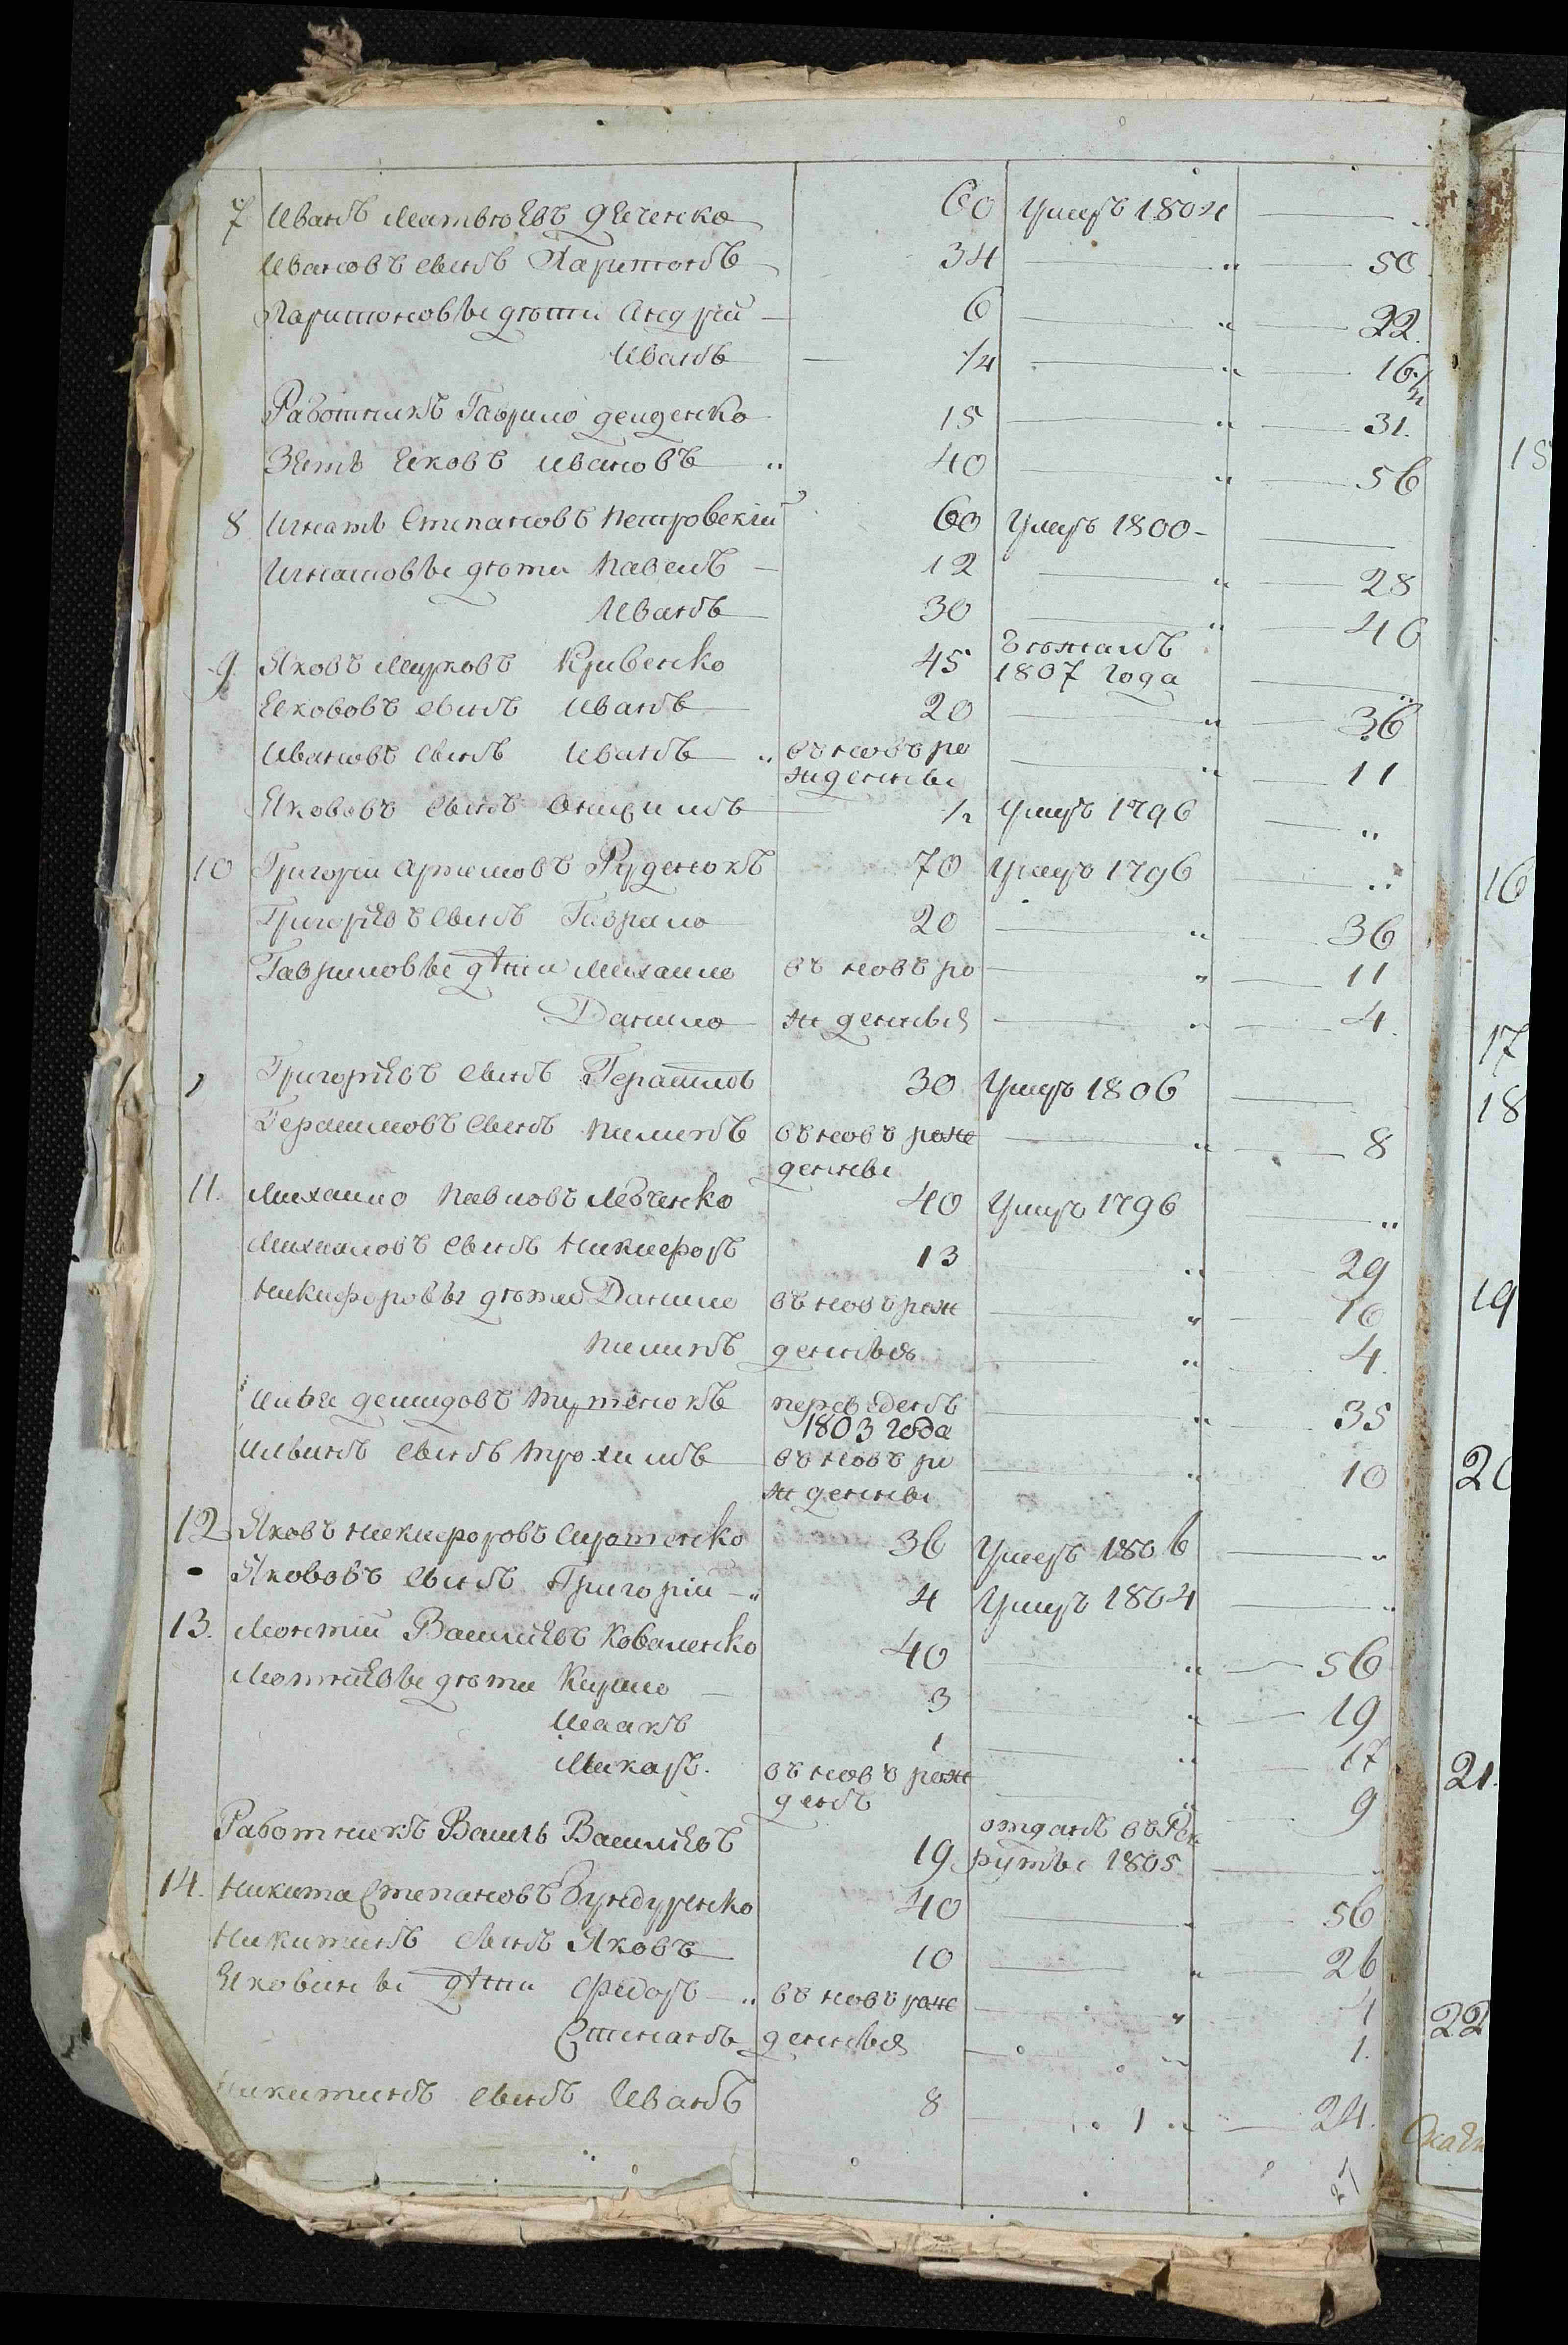 7 Иванъ Матвѣевъ 60 Умеръ 1804
Ивановъ сынъ Харитонъ 34 " 50
Харитоновы дѣти Андрій 6 " 22.
Иванъ 1/4 " 16 1/4
Работникъ Гаврило Демденко 15 " 31.
Зять Яковъ Ивановъ " 40 " 56
8 Игнатъ Степановъ Петровскій 60 Умеръ 1800
Игнатовы дѣти Павелъ 12 " 28
Иванъ 30 " 46
9. Яковъ Марковъ Кривенко 45 бѣжалъ
1807 года "
Якововъ сынъ Иванъ 20 " 36
Ивановъ сынъ Иванъ " въ новъ ро " 11
жденны
Якововъ сынъ Онисимъ 1/2 Умеръ 1796 "
10 Григорій Артемовъ Руденокъ 70 Умеръ 1796 "
Григоріевъ сынъ Гаврило 20 " 36
Гавриловы дѣти Михаило въ новъ ро " 11
Данило жденныя " 4.
Григоріевъ сынъ Герасимъ 30 Умеръ 1806
Герасимовъ сынъ Пилипъ въ новъ рож " 8
денны
11. Михаило Павловъ Левченко 40 Умеръ 1796 "
Михаиловъ сынъ Никифоръ 13 " 29
Никифоровы дѣти Данило въ новъ рож " 10
Пилипъ денныя " 4.
Илья Демидовъ переведенъ " 35
1803 года
Ильинъ сынъ Трохимъ въ новъ ро " 10
жденны
12 Яковъ Никифоровъ Сиротенко 36 Умеръ 1806 "
Якововъ сынъ Григорій " 4 Умеръ 1804 "
13. Леонтій Василіевъ Коваленко 40 " 56
Леонтіевы дѣти Кирило 3 " 19
Исаакъ 1 " 17
Макаръ. въ новъ рож " 9
денъ
Работникъ Василь Василіевъ 19 отданъ въ Рек
руты 1805 "
14. Никита Степановъ Бундуренко 40 " 56
Никитинъ сынъ Яковъ 10 " 26
Яковины дѣти Федоръ " въ новъ рож " 4
Степанъ денныя " 1.
Никитинъ сынъ Иванъ 8 " 24.
15
16
17
18
19
20
21.
22